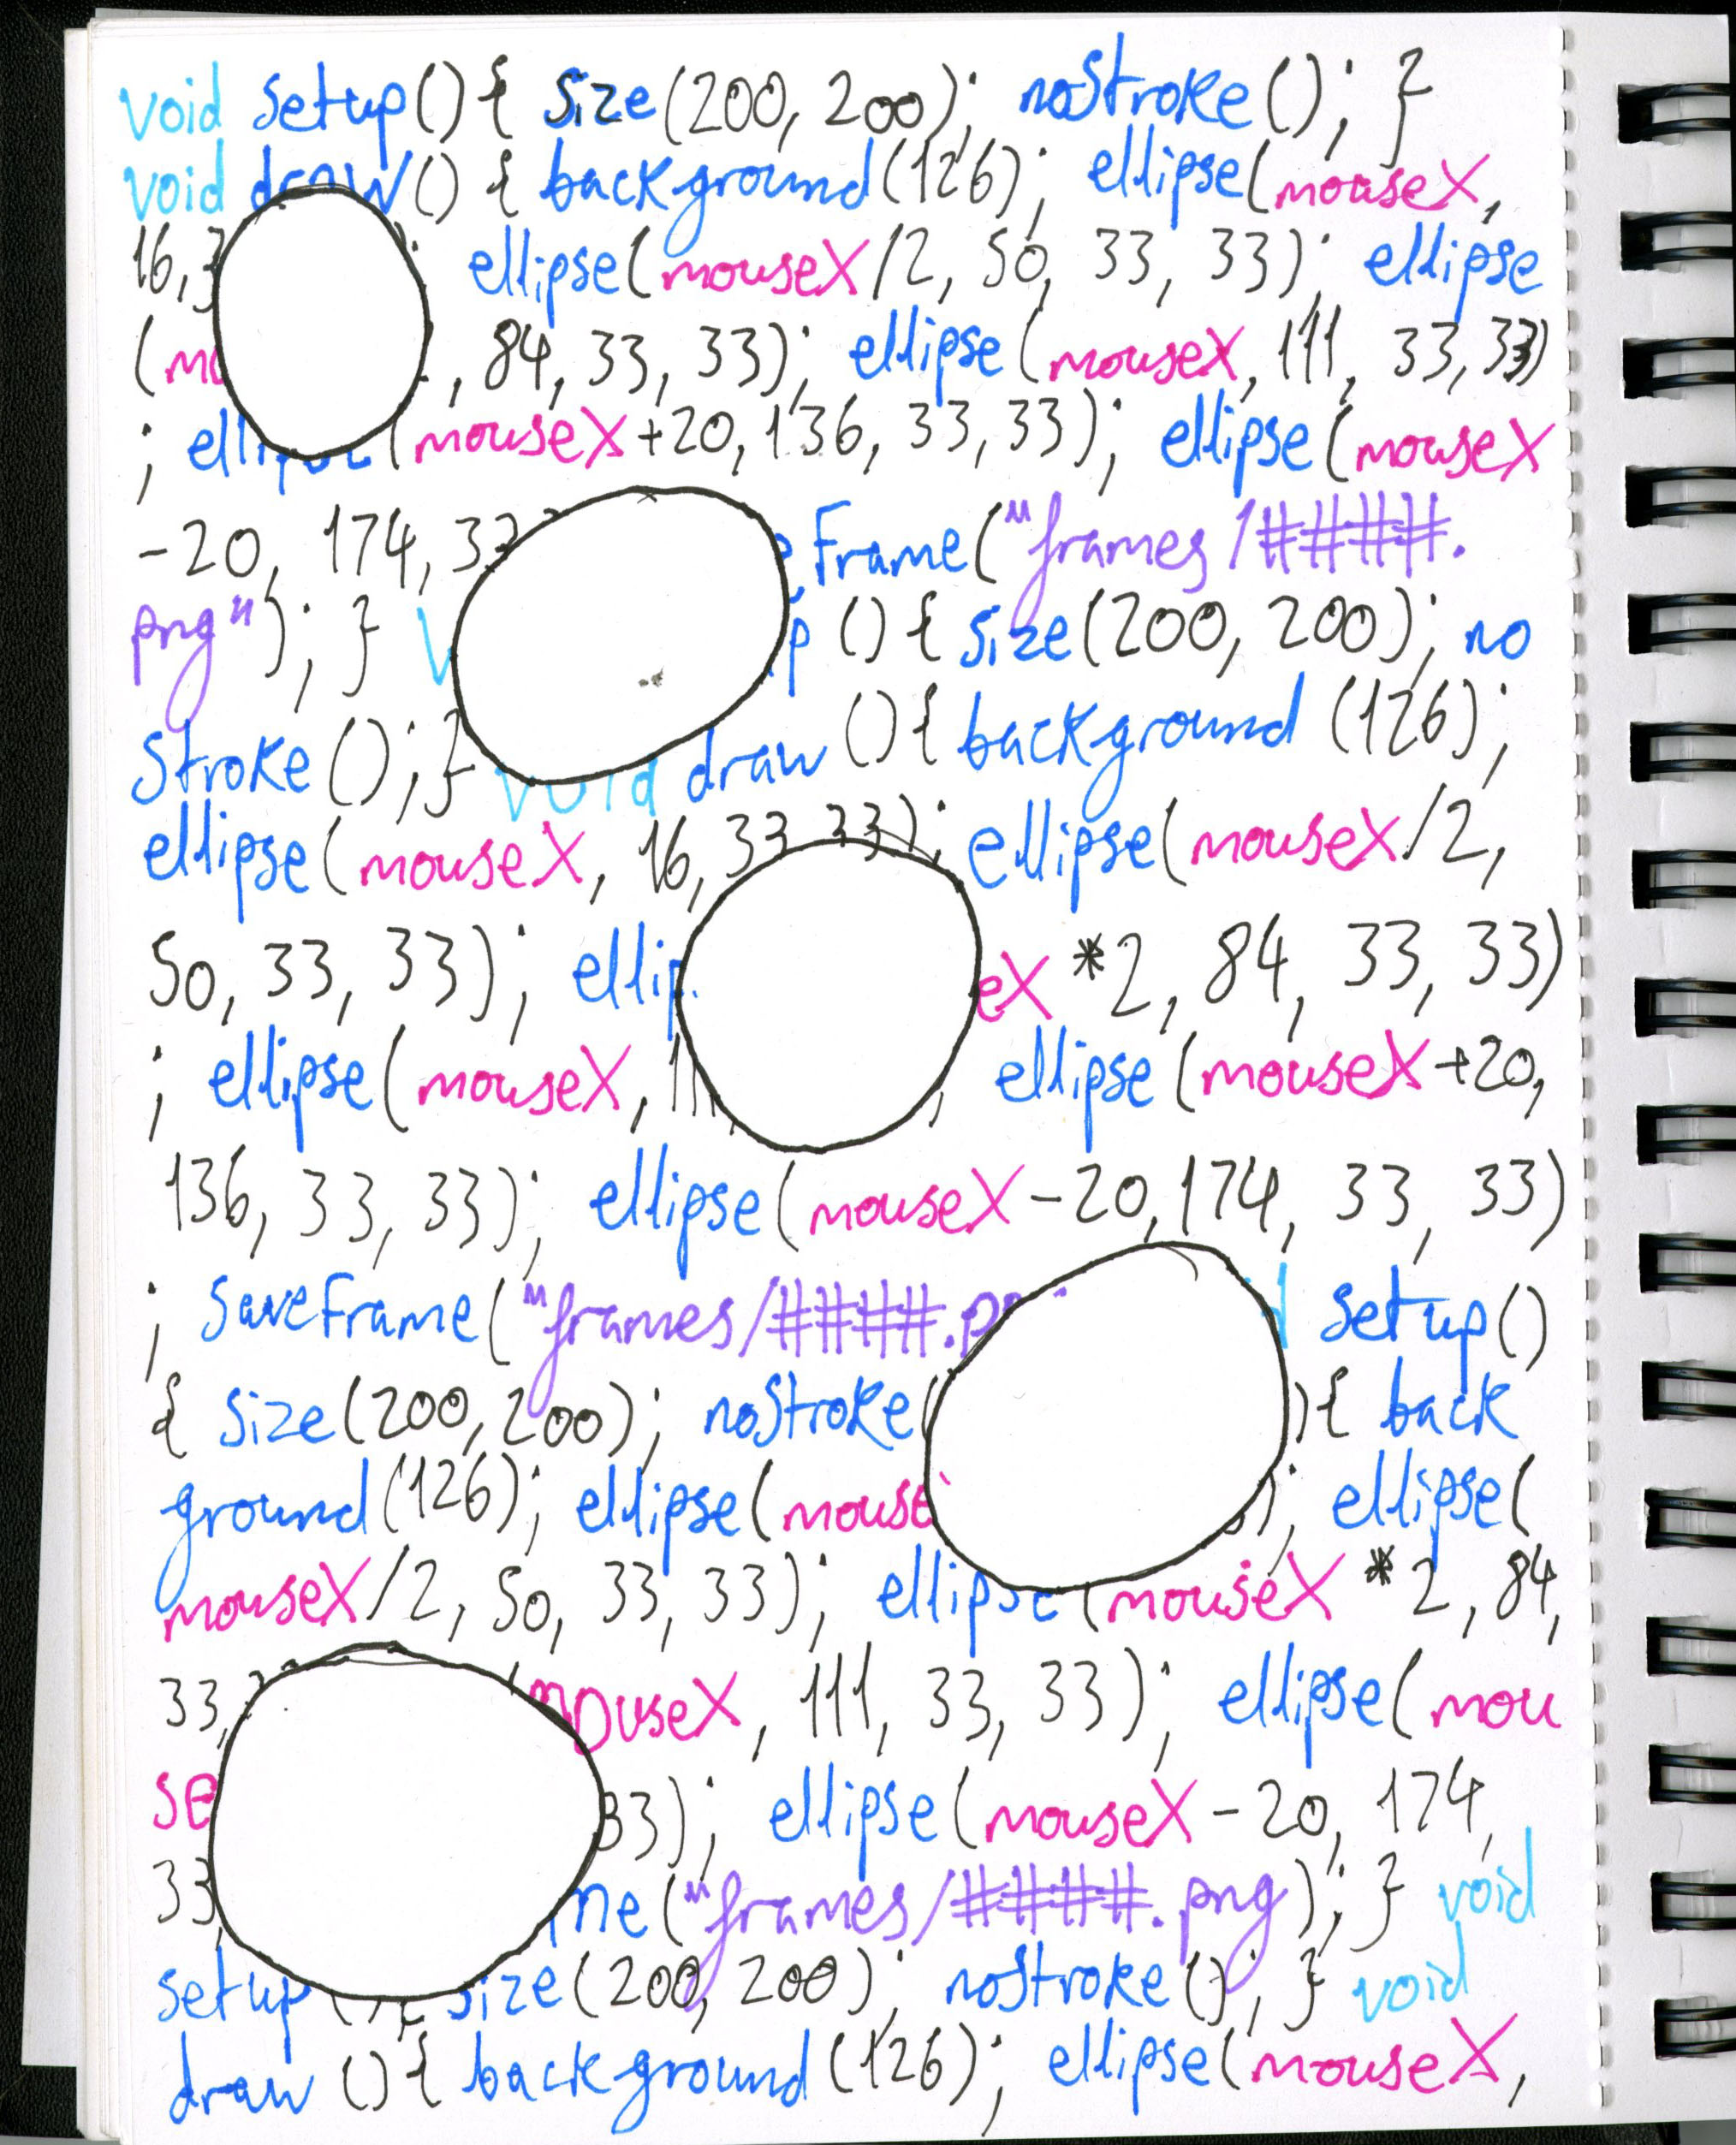 void setup(){ size(200, 200); noStroke(); }
void draw() { background(126); ellipse(mouseX,
16, ellipse(mouseX/2, 50, 33, 33); ellipse
( , 84, 33, 33); ellipse(mouseX, 111, 33, 33)
; ellipse(mouseX+20, 136, 33, 33); ellipse(mouseX
-20, 174, Frame("frames/####.
png"); } () { size(200, 200); no
Stroke(); } void draw () { background (126);
ellipse(mouseX, 16, 33, 33); ellipse(mouseX/2,
50, 33, 33); eX *2, 84, 33, 33)
; ellipse(mouseX, ellipse (mouseX+20,
136, 33, 33); ellipse(mouseX-20, 174, 33, 33)
; saveFrame("frames/####. setup()
{ size(200, 200); noStroke( ){ back
ground(126); ellipse(mouse ; ellipse(
mouseX/2, 50, 33, 33); ellipse(mouseX *2, 84,
33, mouseX, 111, 33, 33); ellipse(mou
se 33); ellipse(mouseX-20, 174,
33 me("frames/####.png); } void
setup(){ size(200, 200); noStroke(); } void
draw (){ background(126); ellipse(mouseX,